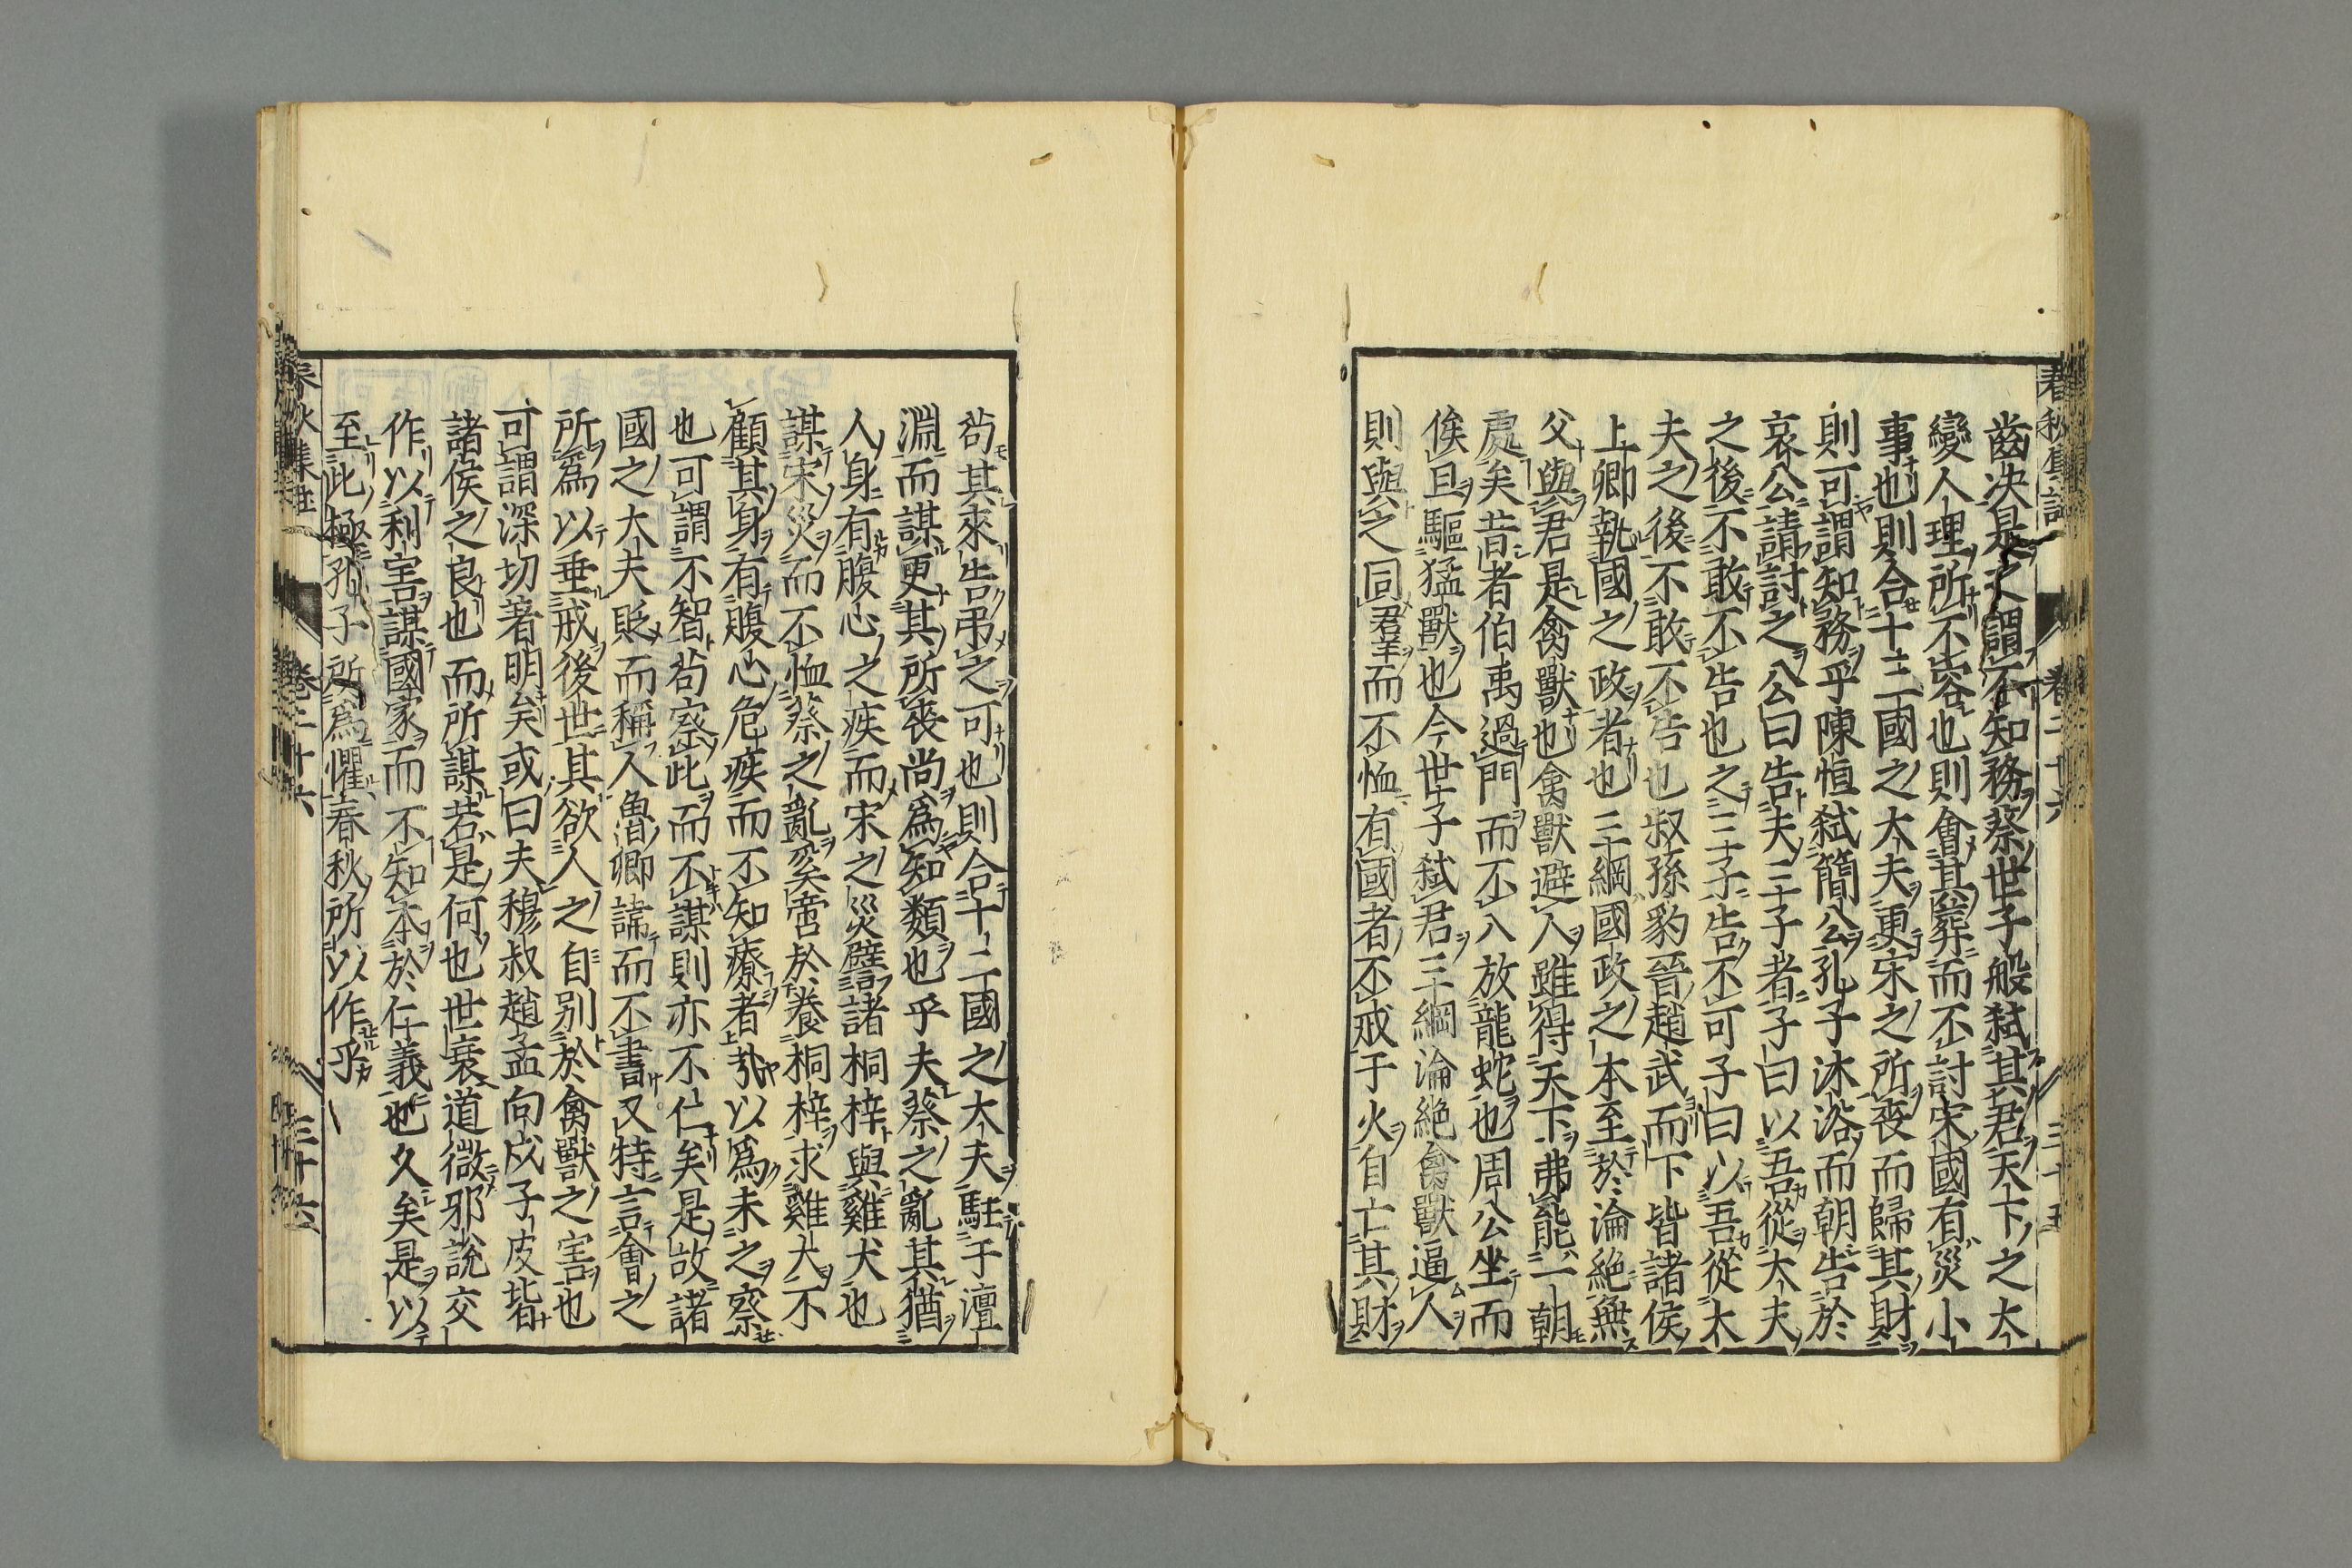 齒决是之謂不知務蔡世子般弑其君天下之大
變人理所不容也則會其葬而不討宋國有災小
事也則合十二國之大夫更宋之所喪而歸其財
則可謂知務乎陳恒弑簡公孔子沐浴而朝告於
哀公請討之公曰告夫三子者子曰以吾從大夫
之後不敢不告也之三子告不可子曰以吾從大
夫之後不敢不告也叔孫豹晉趙武而下皆諸侯
上卿執國之政者也三綱國政之本至於淪絶無
父與君是禽獸也禽獸避人雖得天下弗能一朝
處矣昔者伯禹過門而不入放龍蛇也周公坐而
俟旦驅猛獸也今世子弑君三綱淪絶禽獸逼人
則與之同群而不恤有國者不戒于火自亡其財
苟其來告弔之可也則合十二國之大夫駐于澶
淵而謀更其所喪尚爲知類也乎夫蔡之亂其猶
人身有腹心之疾而宋之災譬諸桐梓與雞犬也
謀宋災而不恤蔡之亂奚啻於養桐梓求雞犬不
顧其身有腹心危疾而不知療者哉以爲未之察
也可謂不智苟察此而不謀則亦不仁矣是故諸
國之大夫貶而稱人魯卿諱而不書又特言會之
所爲以垂戒後世其欲人之自别於禽獸之害也
可謂深切著明矣或曰夫穆叔趙孟向戌子皮皆
諸侯之良也而所謀若是何也世衰道微邪說交
作以利害謀國家而不知本於仁義也久矣是以
至此極孔子所爲懼春秋所以作乎
春秋集註
卷二十六
三十六